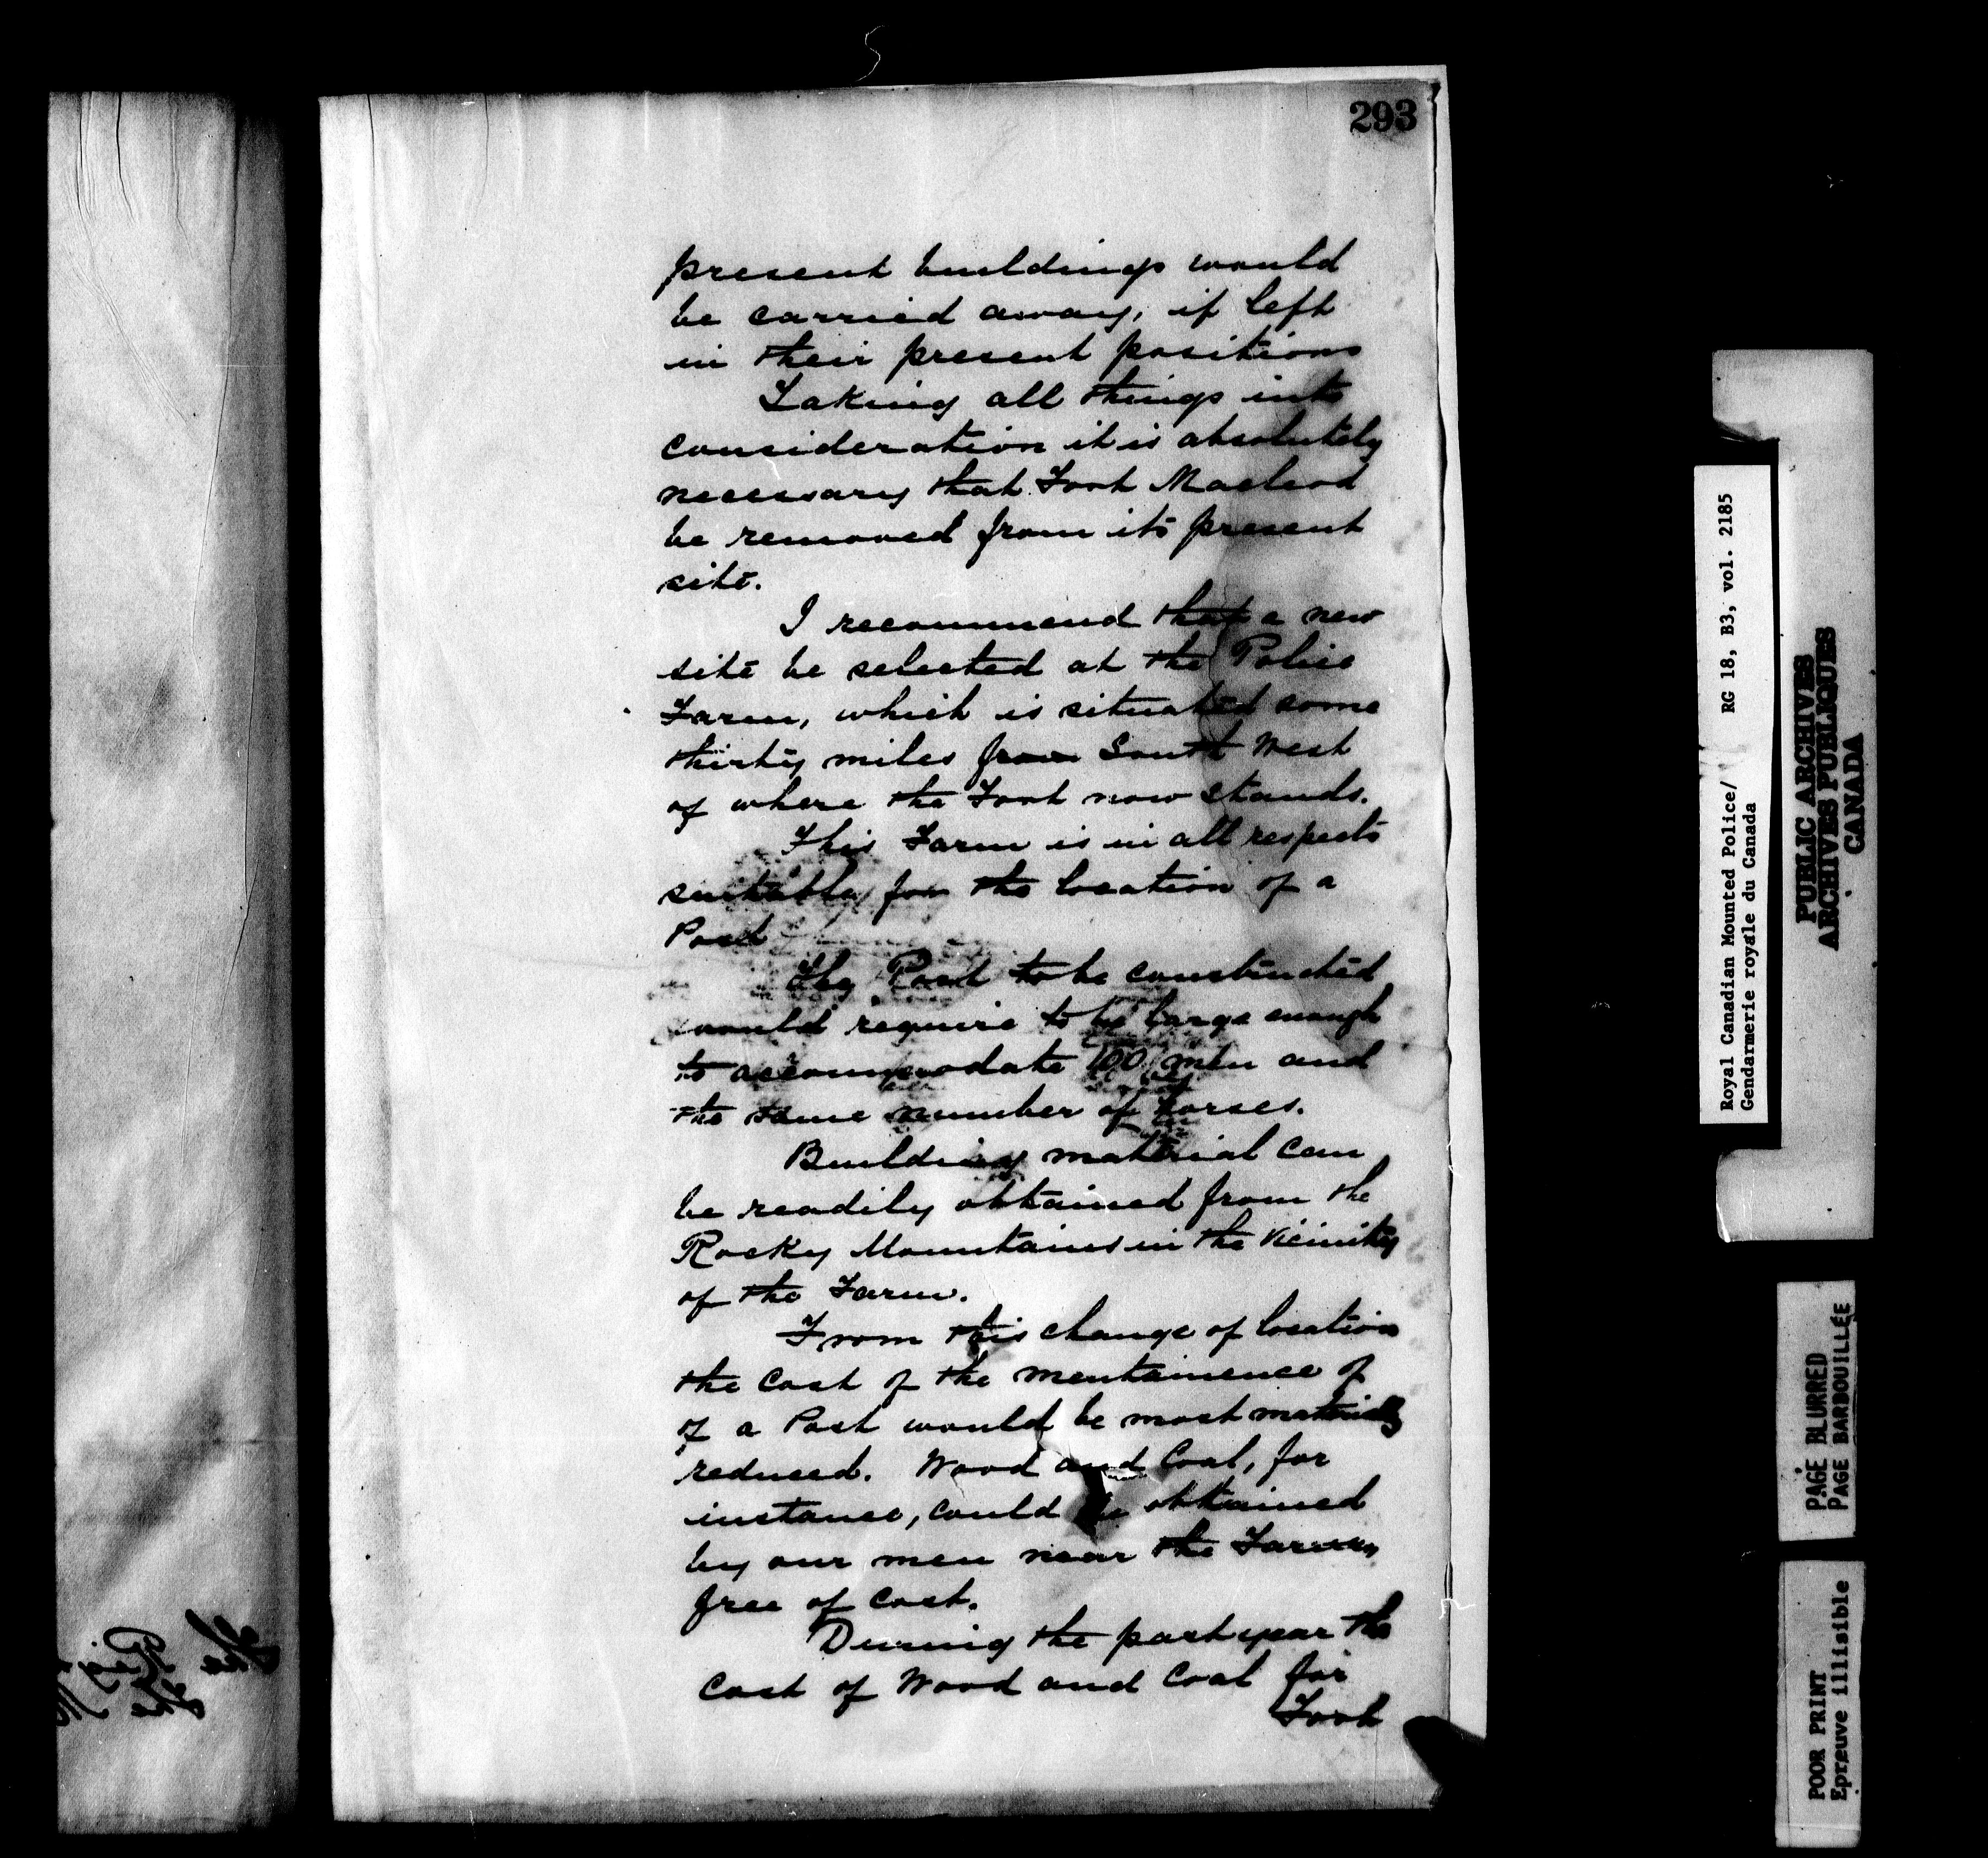 293
present buildings would
be carried away, if left
in their present positions
Taking all things into
consideration it is absolutely
necessary that Fort Macleod
be removed from its present
site.
I recommend that a new
site be selected at the Police
Farm, which is situated some
thirty miles from South West
of where the Fort now stands.
This Farm is in all respects
suitable for the location of a
Post
The Post to be constructed
would require to be large enough
to accommodate 100 men and
the same number of horses.
Building material can
be readily obtained from the
Rocky Mountains in the vicinity
of the Farm.
From this change of location
the cost of the mentainence of
of a Post would be most materially
reduced. Wood and Coal, for
instance, could be obtained
by our men near the Farm,
free of cost.
During the past year the
cost of Wood and Coal for
Fort
Royal Canadian Mounted Police/ RG 18, B3, vol. 2185
Gendarmerie royale du Canada
PUBLIC ARCHIVES
ARCHIVES PUBLIQUES
CANADA
PAGE BLURRED
PAGE BARBOUILLÉE
POOR PRINT
Epreuve illisible